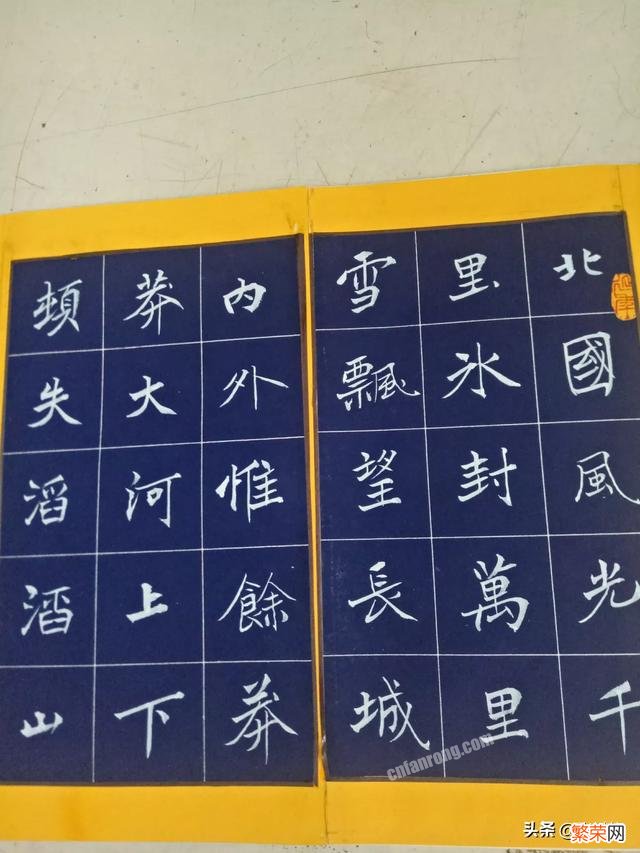 北國風光千
里冰封萬里
雪飄望長城
内外惟餘莽
莽大河上下
頓失滔滔山
cnfanrong.com
头条
繁荣网